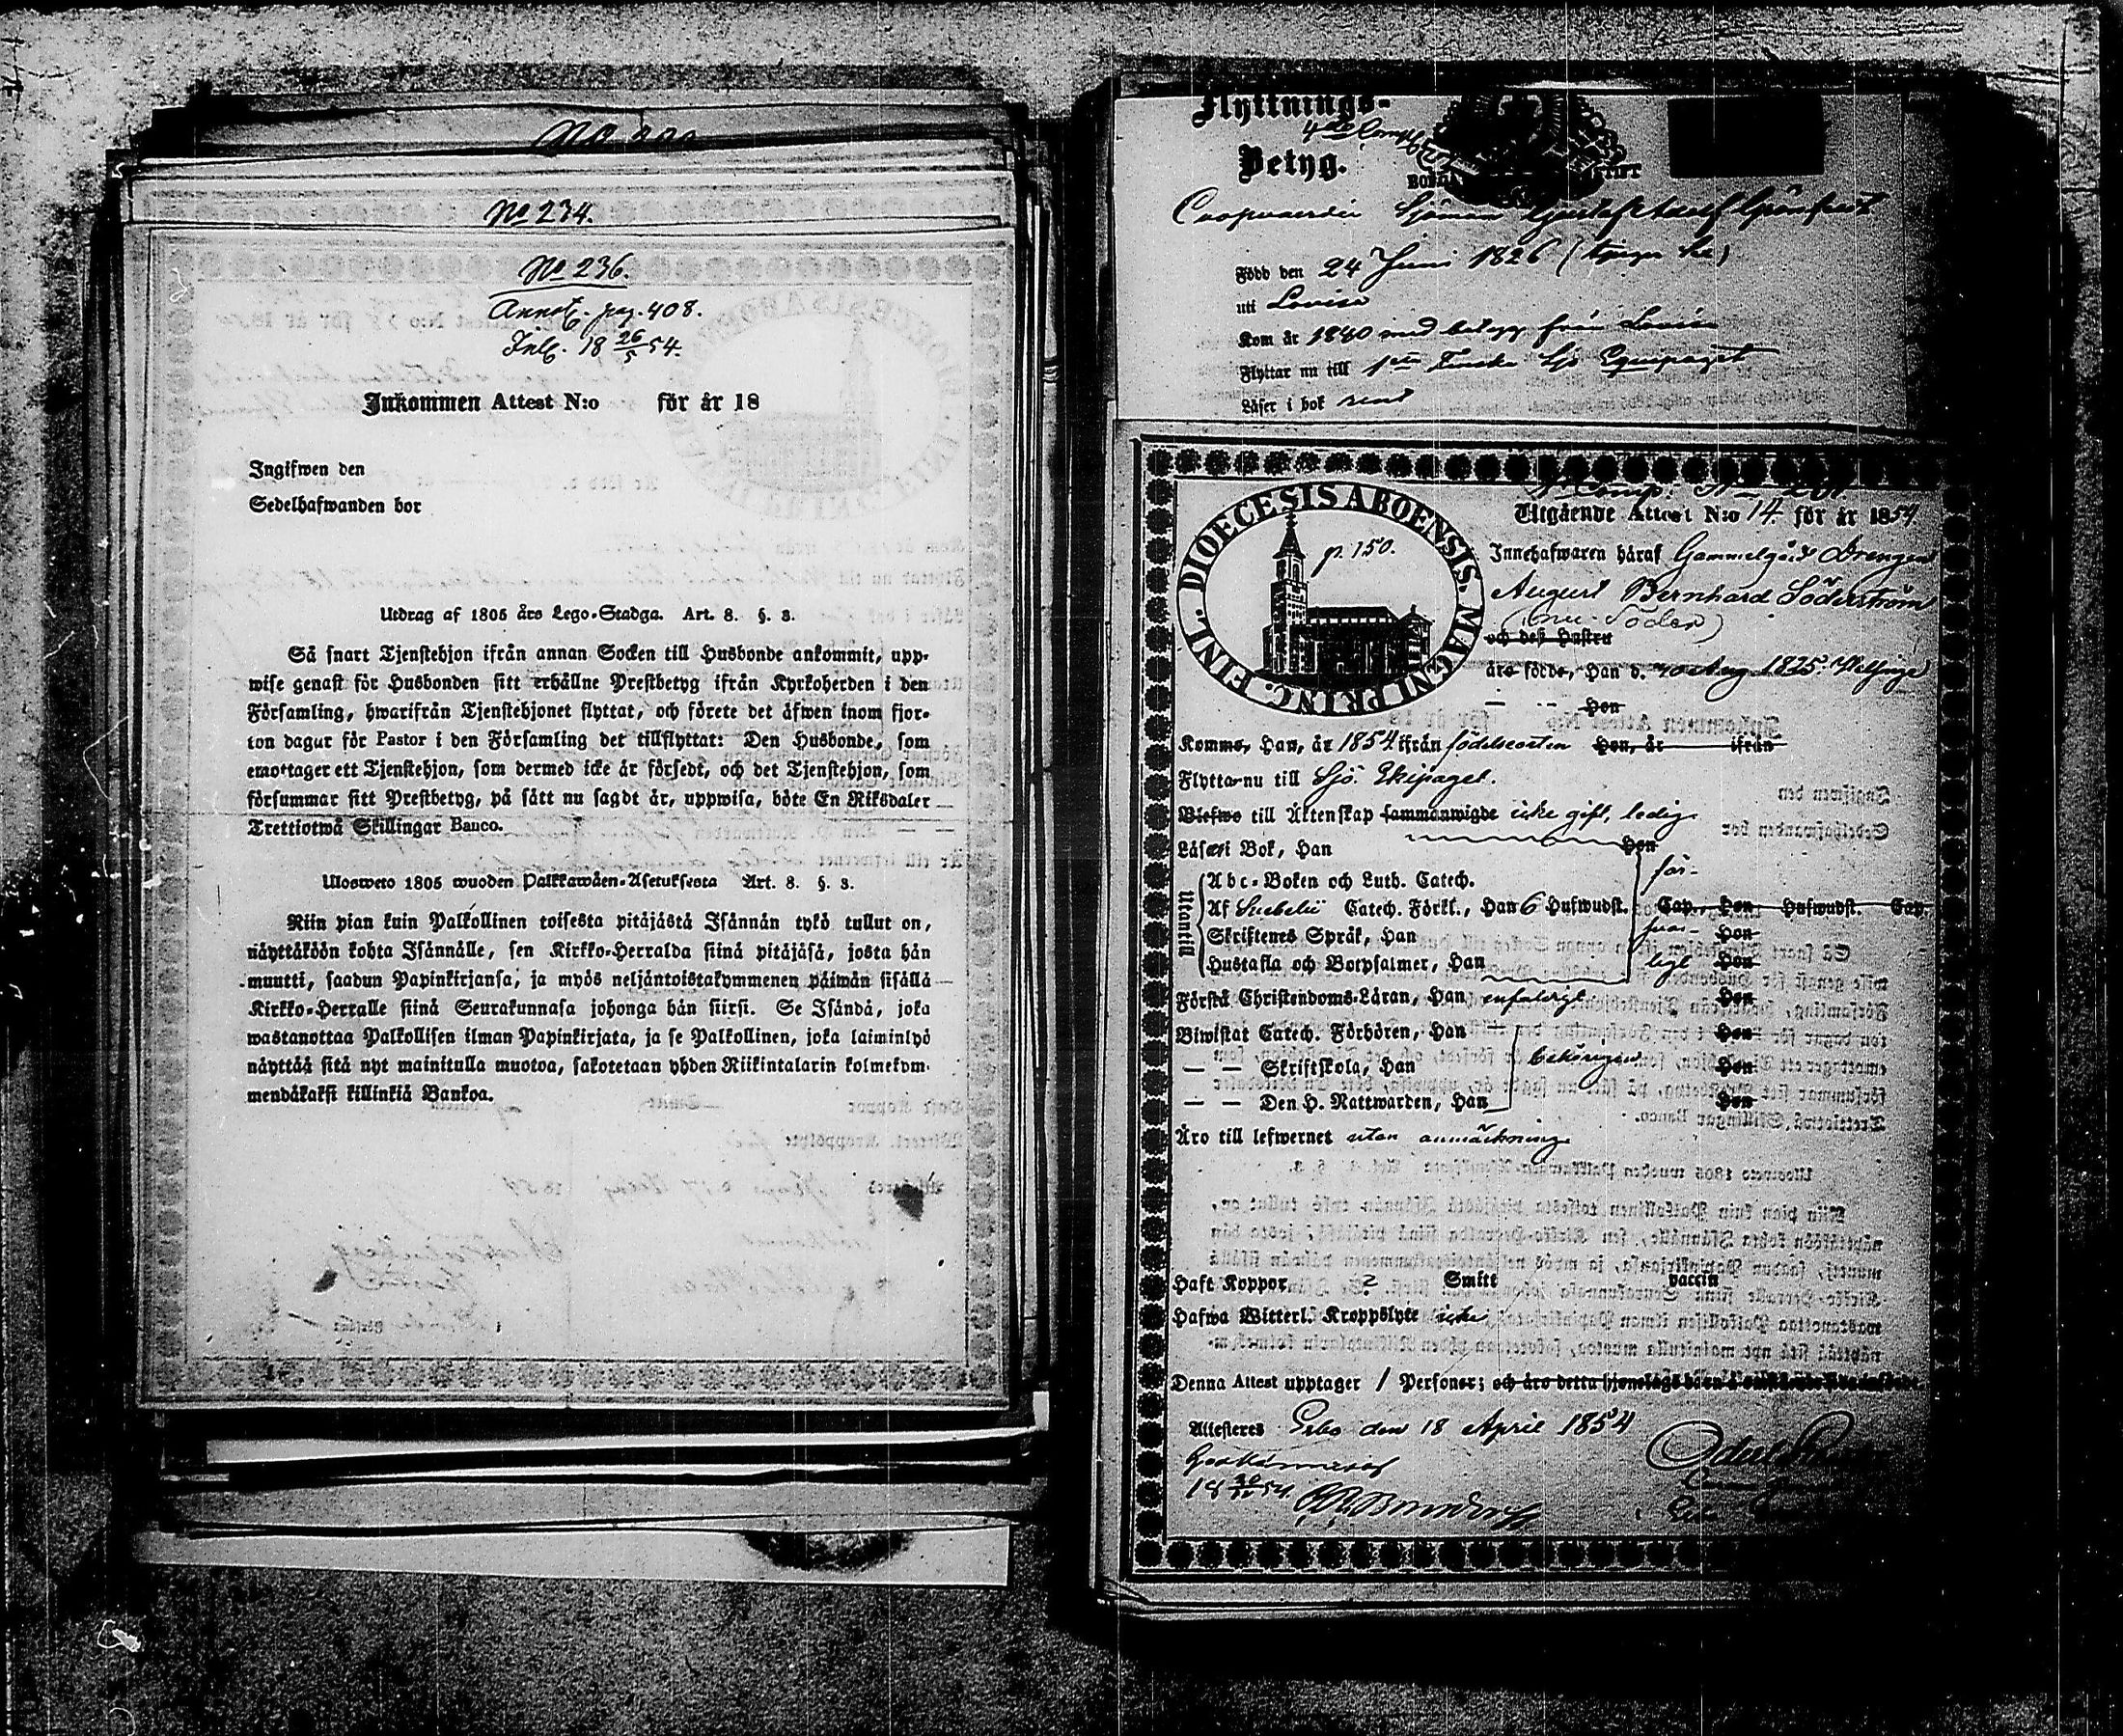 No 234.
No 236.
Annot. pag. 408.
Inl. 18 26/5 54.
Inkommen Attest N:o för år 18
Ingifwen den
Sedelhafwanden bor
Utdrag af 1805 års Lego-Stadga. Art. 8. §. 3.
Så snart Tjenstehjon ifrån annan Socken till Husbonde ankommit, upp-
wise genast för Husbonden sitt erhållne Prestbetyg ifrån Kyrkoherden i den
Församling, hwarifrån Tjenstehjonet flyttat, och förete det äfwen inom fjor-
ton dagar för Pastor i den Församling det tillflyttat: Den Husbonde, som
emottager ett Tjenstehjon, som dermed icke är försedt, och det Tjenstehjon, som
försummar sitt Prestbetyg, på sätt nu sagdt är, uppwisa, böte En Riksdaler
Trettiotwå Skillingar Banco.
Ulosweto 1805 wuoden Palkkawäen-Asetuksesta Art. 8. §. 3.
Niin pian kuin Palkollinen toisesta pitäjästä Isännän tykö tullut on,
näyttäköön kohta Isännälle, sen Kirkko-Herralda siinä pitäjäsä, josta hän
muutti, saadun Papinkirjansa, ja myös neljäntoistakymmenen päiwän sisällä
Kirkko-Herralle siinä Seurakunnasa johonga hän siirsi. Se Isändä, joka
wastanottaa Palkollisen ilman Papinkirjata, ja se Palkollinen, joka laiminlyö
näyttää sitä nyt mainitulla muotoa, sakotetaan yhden Riikintalarin kolmekym-
mendäkaksi killinkiä Bankoa.
Flyttnings-
Betyg.
Sjöman Gustaf Adolf
Född den 24 Juni 1826
uti Lovisa
Kom år 1840 med betyg från Lovisa
Flyttar nu till 1sta Finska Sjö Equipaget
Läser i bok rent
DIOECESIS ABOENSIS. MAGNI PRINC. FINL.
p. 150.
Utgående Attest N:o 14. för år 1854.
Innehafwaren häraf Gammelgård Drengen
August Bernhard Söderström
(nu Söder)
och deß Hustru
äro födde, Han d. Aug 1825. Helsinge
Hon
Komme, Han, år 1854 ifrån födelseorten Hon, år ifrån
Flytta nu till Sjö Ekipaget.
Blefwo till Äktenskap sammanwigde icke gift, ledig
Läsa i Bok, Han Hon
Utantill
Abc-Boken och Luth. Catech. för-
Af Svebelii Catech. Förkl., Han 6 Hufwudst. Cap., Hon Hufwudst. Cap.
Skriftenes Språk, Han swar- Hon
Hustafla och Botpsalmer, Han ligt Hon
Förstå Christendoms-Läran, Han enfaldigt Hon
Biwistat Catech. Förhören, Han Hon
— — Skriftskola, Han behörigen Hon
— — Den H. Nattwarden, Han Hon
Äro till lefwernet utan anmärkning
Haft Koppor ? Smitt vaccin
Hafwa Witterl. Kroppslyte icke
Denna Attest upptager 1 Personer;
Attesteras Esbo den 18 April 1854